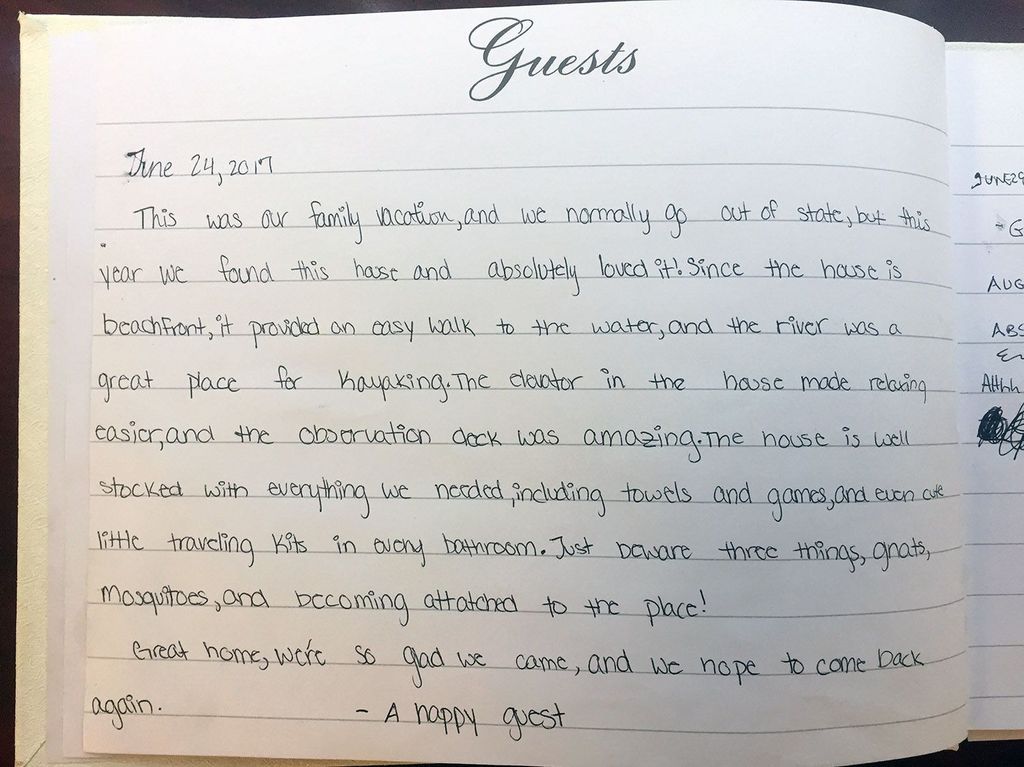 Guests
June 24, 2017
This was our family vacation, and we normally go out of state, but this
year we found this house and absolutely loved it! Since the house is
beachfront, it provided an easy walk to the water, and the river was a
great place for kayaking. The elevator in the house made relaxing
easier, and the observation deck was amazing. The house is well
stocked with everything we needed, including towels and games, and even cute
little traveling kits in every bathroom. Just beware three things, gnats,
mosquitoes, and becoming attatched to the place!
Great home, we're so glad we came, and we hope to come back
again.
- A happy guest
JUNE 29
- G
AUG
ABS
Ahhh